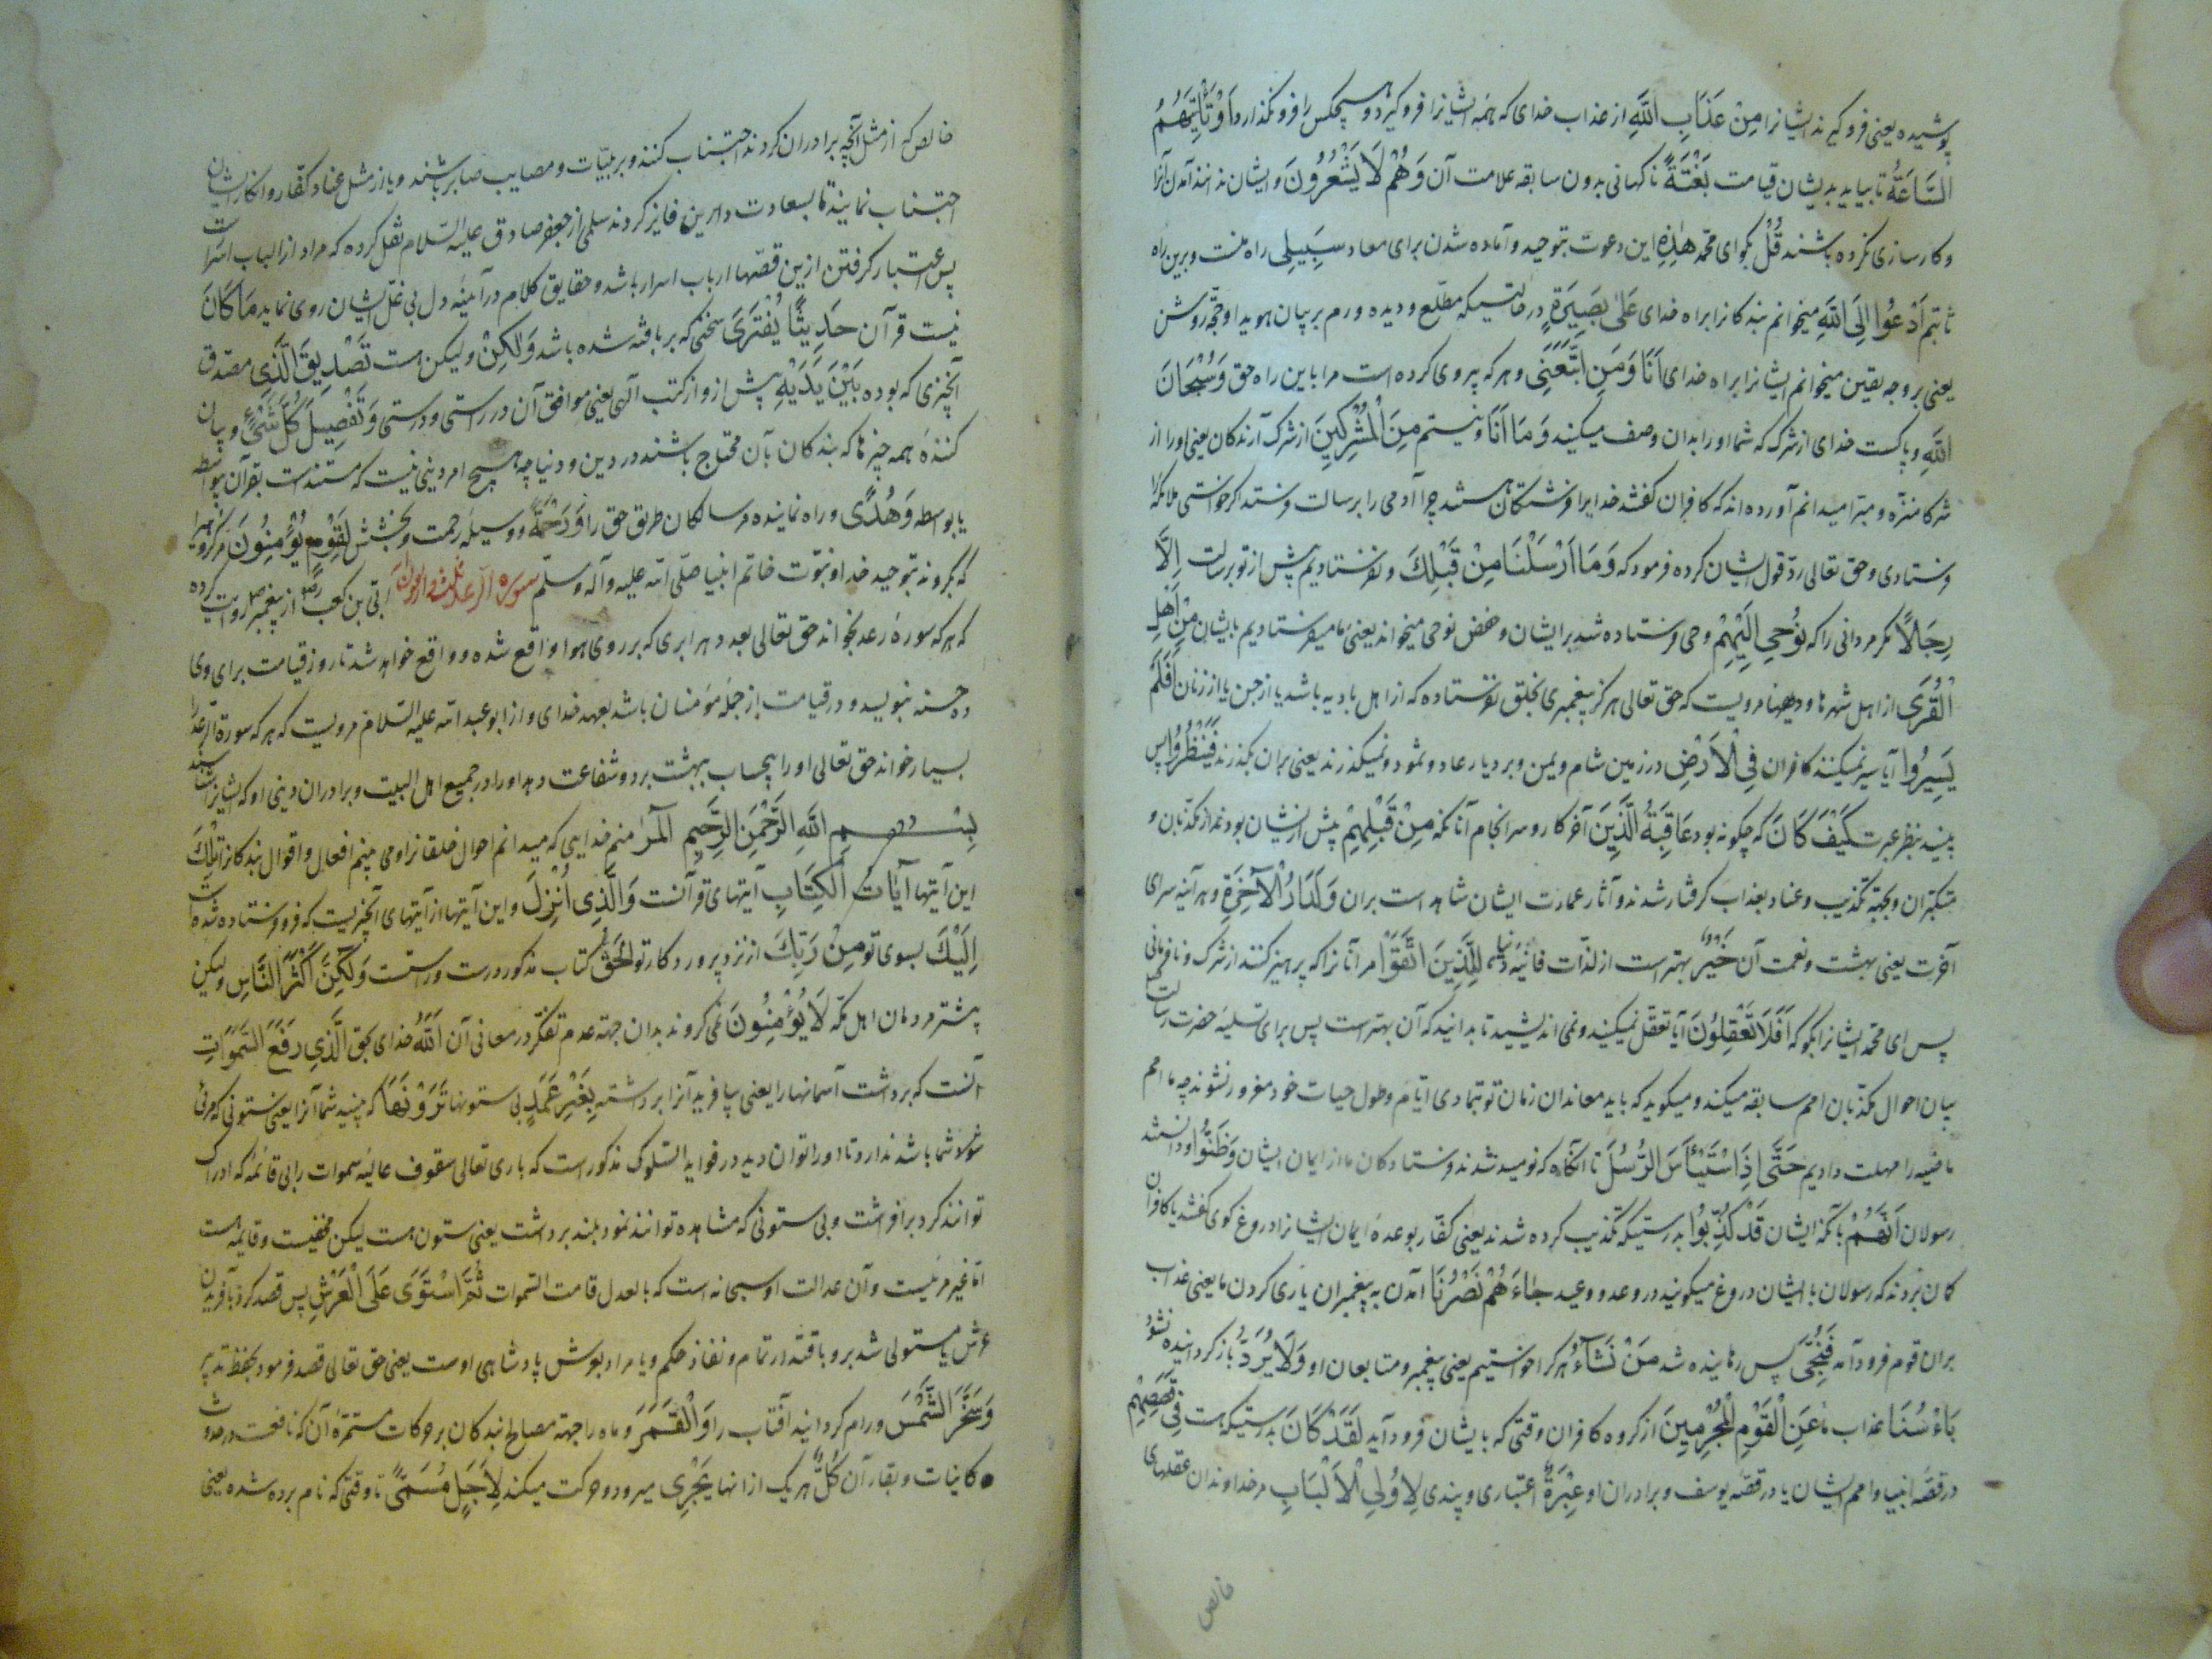 پوشیده یعنی فروگیرنده ایشانرا مِنْ عَذَابِ اللَّهِ از عذاب خدای که همه ایشانرا فروگیرد و هیچکس را فرو نگذارد اَوْ تَأْتِیَهُمُ
السَّاعَةُ تا بیاید بدیشان قیامت بَغْتَةً ناکهانی بدون سابقه علامت آن وَهُمْ لَا یَشْعُرُونَ و ایشان ندانند آمدن آنرا
و کارسازی نکرده باشند قُلْ بکو ای محمد هٰذِهِ این دعوت بتوحید و آماده شدن برای معاد سَبِیلِی راه منست و برین راه
ثابتم اَدْعُوا اِلَی اللَّهِ میخوانم بندکانرا براه خدای عَلٰی بَصِیرَةٍ در حالتیکه مطلع و دیده ورم بر بیان هویدا و حجّه روشن
یعنی بر وجه یقین میخوانم ایشانرا براه خدای اَنَا وَمَنِ اتَّبَعَنِی و هر که پیروی کرده است مرا باین راه حق وَسُبْحَانَ
اللَّهِ و پاکست خدای از شرک که شما او را بدان وصف میکنید وَمَا اَنَا و نیستم مِنَ الْمُشْرِکِینَ از شرک آرندکان یعنی او را از
شرکا منزّه و مبرّا میدانم آورده اند که کافران کفتند خدایرا فرشتکان هستند چرا آدمی را برسالت فرستد اکر خواستی ملائکه را
فرستادی و حق تعالی ردّ قول ایشان کرده فرمود که وَمَا اَرْسَلْنَا مِنْ قَبْلِکَ و نفرستادیم پیش از تو برسالت اِلَّا
رِجَالًا مکر مردانی را که نُوْحِی اِلَیْهِمْ وحی فرستاده شد بر ایشان و حفص نوحی میخواند یعنی ما میفرستادیم بایشان مِنْ اَهْلِ
الْقُرَی از اهل شهرها و دیهها مرویست که حق تعالی هرکز پیغمبری بخلق نفرستاده که از اهل بادیه باشد یا از جن یا از زنان اَفَلَمْ
یَسِیرُوا آیا سیر نمیکنند کافران فِی الْاَرْضِ در زمین شام و یمن و بر دیار عاد و ثمود نمیکذرند یعنی بران بکذرند فَیَنْظُرُوا پس
ببینند بنظر عبرت کَیْفَ کَانَ که چکونه بود عَاقِبَةُ الَّذِینَ آخر کار و سرانجام آنانکه مِنْ قَبْلِهِمْ پیش از ایشان بودند از مکذّبان و
متکبّران و بجهة تکذیب و عناد بعذاب کرفتار شدند و آثار عمارت ایشان شاهد است بران وَلَدَارُ الْآخِرَةِ و هر آینه سرای
آخرت یعنی بهشت و نعمت آن خَیْرٌ بهتر است از لذّات فانیه دنیا لِلَّذِینَ اتَّقَوْا مر آنانرا که پرهیز کنند از شرک و نافرمانی
پس ای محمّد ایشانرا بکو که اَفَلَا تَعْقِلُونَ آیا تعقل نمیکنید و نمی اندیشید تا بدانید که آن بهتر است پس برای تسلیه حضرت رسالت
بیان احوال مکذّبان امم سابقه میکند و میکوید که باید معاندان زمان تو بتمادی ایّام و طول حیات خود مغرور نشوند چه ما امم
ماضیه را مهلت دادیم حَتّٰی اِذَا اسْتَیْأَسَ الرُّسُلُ تا آنکاه که نومید شدند فرستادکان ما از ایمان ایشان وَظَنُّوا و دانستند
رسولان اَنَّهُمْ بآنکه ایشان قَدْ کُذِّبُوا بدرستیکه تکذیب کرده شدند یعنی کفّار بوعدهٔ ایمان ایشانرا دروغ کوی کفتند یا کافران
کمان بردند که رسولان با ایشان دروغ میکویند در وعد و وعید جَاءَهُمْ نَصْرُنَا آمدن به پیغمبران یاری کردن ما یعنی عذاب
بران قوم فرود آمد فَنُجِّیَ پس رهانیده شد مَنْ نَشَاءُ هرکرا خواستیم یعنی پیغمبر و متابعان او وَلَا یُرَدُّ باز کردانیده نشود
بَأْسُنَا عذاب ما عَنِ الْقَوْمِ الْمُجْرِمِینَ از کروه کافران وقتی که بایشان فرود آید لَقَدْ کَانَ بدرستیکه هست فِی قَصَصِهِمْ
در قصّه انبیا و امم ایشان یا در قصّه یوسف و برادران او عِبْرَةٌ اعتباری و پندی لِاُولِی الْاَلْبَابِ مر خداوندان عقلهای
خالص
خالص که از مثل آنچه برادران کردند اجتناب کنند و بر بلیّات و مصایب صابر باشند و یا از مثل عناد کفّار و انکار ایشان
اجتناب نمایند تا بسعادت دارین فایز کردند سلمی از جعفر صادق علیه السّلام نقل کرده که مراد از الباب اسرار است
پس اعتبار کرفتن ازین قصّها ارباب اسرار باشد و حقایق کلام در آینهٔ دل بی غلّ ایشان روی نماید مَا کَانَ
نیست قرآن حَدِیثًا یُفْتَرَی سخنی که بربافته شده باشد وَلٰکِنْ و لیکن هست تَصْدِیقَ الَّذِی مصدق
آنچیزی که بوده بَیْنَ یَدَیْهِ پیش ازو از کتب الٰهی یعنی موافق آن در راستی و درستی وَتَفْصِیلَ کُلِّ شَیْءٍ و بیان
کنندهٔ همه چیزها که بندکان بآن محتاج باشند در دین و دنیا چه هیچ امر دینی نیست که مستند است بقرآن بواسطه
یا بواسطه وَهُدًی و راه نماینده مر سالکان طریق حق را وَرَحْمَةً و وسیلهٔ رحمت و بخشش لِقَوْمٍ یُؤْمِنُونَ مر کروهیرا
که بکروند بتوحید خدا و نبوّت خاتم انبیا صلّی الله علیه و آله و سلّم سوره الرعد ثلث و اربعون آیة ابیّ بن کعب از پیغمبر روایت کرده
که هر که سورهٔ رعد بخواند حق تعالی بعدد هر ابری که بر روی هوا واقع شده و واقع خواهد شد تا روز قیامت برای وی
ده حسنه بنویسد و در قیامت از جملهٔ مؤمنان باشد بعهد خدای و از ابو عبد الله علیه السّلام مرویست که هر که سورة الرعد را
بسیار خواند حق تعالی او را بیحساب ببهشت برد و شفاعت دهد او را در جمیع اهل البیت و برادران دینی او که ایشانرا شناسد
بِسْمِ اللَّهِ الرَّحْمٰنِ الرَّحِیمِ الٓمٓرٰ منم خدایی که میدانم احوال خلقانرا و می بینم افعال و اقوال بندکانرا تِلْکَ
این آیتها آیَاتُ الْکِتَابِ آیتهای قرآنست وَالَّذِی اُنْزِلَ و این آیتها از آیتهای آنچیزیست که فرو فرستاده شده است
اِلَیْکَ بسوی تو مِنْ رَبِّکَ از نزد پروردکار تو الْحَقُّ کتاب مذکور درست و راست وَلٰکِنَّ اَکْثَرَ النَّاسِ و لیکن
بیشتر مردمان اهل مکّه لَا یُؤْمِنُونَ نمی کروند بدان جهة عدم تفکّر در معانی آن اَللَّهُ خدای بحق الَّذِی رَفَعَ السَّمٰوَاتِ
آنست که برداشت آسمانها را یعنی بیافرید آنرا برداشته بِغَیْرِ عَمَدٍ بی ستونها تَرَوْنَهَا که بینید شما آنرا یعنی ستونی که مرئی
شما باشد ندارد تا او را توان دید در فواید السّلوک مذکور است که باری تعالی سقوف عالیه سموات را بی قائمهٔ که ادراک
توانند کرد برافراشت و بی ستونی که مشاهده توانند نمود بلند برداشت یعنی ستون هست لیکن مخفیست و قایمه هست
امّا غیر مرئیست و آن عدالت اوسبحانه است که بالعدل قامت السّموات ثُمَّ اسْتَوَی عَلَی الْعَرْشِ پس قصد کرد بآفریدن
عرش یا مستولی شد برو باقتدار تمام و نفاذ حکم و یا مراد بعرش پادشاهی اوست یعنی حق تعالی قصد فرمود بحفظ و تدبیر
وَسَخَّرَ الشَّمْسَ و رام کردانید آفتاب را وَالْقَمَرَ و ماه را جهة مصالح بندکان بر حرکات مستمرّهٔ آن که نافعست در حدوث
کاینات و بقاء آن کُلٌّ هر یک ازانها یَجْرِی میرود و حرکت میکند لِاَجَلٍ مُسَمًّی تا وقتی که نام برده شده یعنی